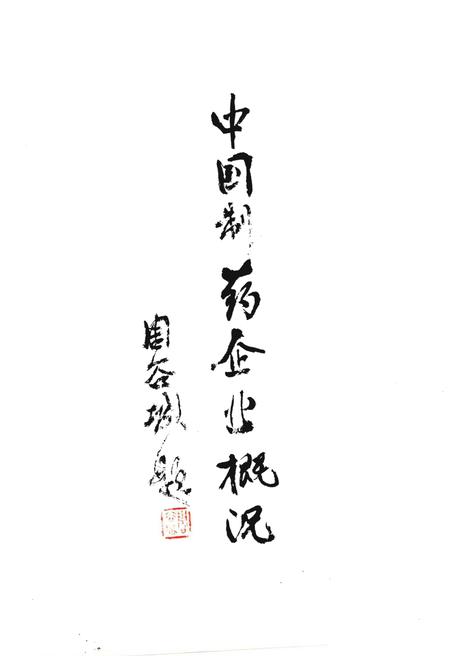 中国制药企业概况
周谷城题